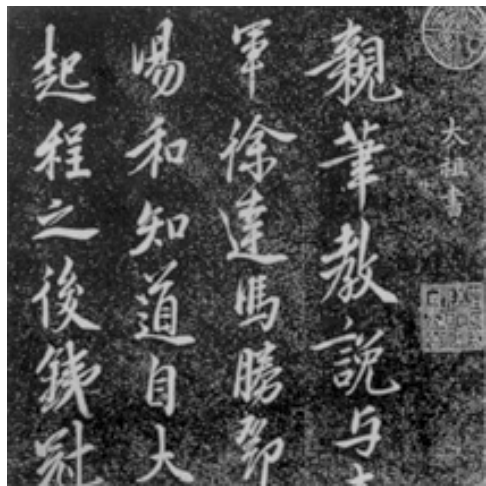 大祖書
親筆教說与大
軍徐達馬勝鄧
湯和知道自大
起程之後鐵冠